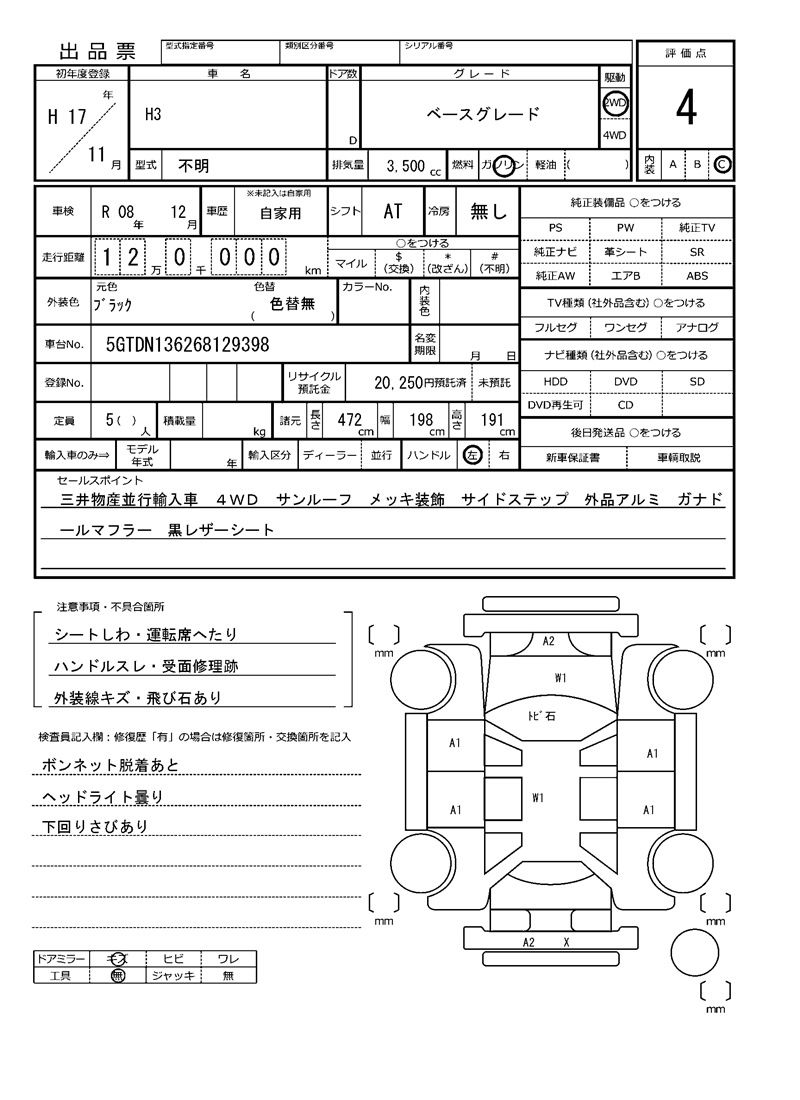 出品票
型式指定番号 類別区分番号 シリアル番号
評価点
初年度登録 車名 ドア数 グレード 駆動
H 17 年
11 月
H3
D
ベースグレード
2WD
4WD
4
型式 不明 排気量 3,500 cc 燃料 ガソリン 軽油 ( )
内装 A B C
車検 R 08 年 12 月 車歴 ※未記入は自家用 自家用 シフト AT 冷房 無し
純正装備品 ○をつける
PS PW 純正TV
純正ナビ 革シート SR
純正AW エアB ABS
走行距離 1 2 万 0 千 0 0 0 km
○をつける
マイル $ (交換) * (改ざん) # (不明)
外装色 元色 ブラック 色替 ( 色替無 ) カラーNo. 内装色
TV種類 (社外品含む) ○をつける
フルセグ ワンセグ アナログ
車台No. 5GTDN136268129398 名変期限 月 日
ナビ種類 (社外品含む) ○をつける
HDD DVD SD
DVD再生可 CD
登録No. リサイクル預託金 20,250円預託済 未預託
定員 5 ( ) 人 積載量 kg 諸元 長さ 472 cm 幅 198 cm 高さ 191 cm
後日発送品 ○をつける
新車保証書 車輌取説
輸入車のみ⇒ モデル年式 年 輸入区分 ディーラー 並行 ハンドル 左 右
セールスポイント
三井物産並行輸入車 4WD サンルーフ メッキ装飾 サイドステップ 外品アルミ ガナド
ールマフラー 黒レザーシート
注意事項・不具合箇所
シートしわ・運転席へたり
ハンドルスレ・受面修理跡
外装線キズ・飛び石あり
検査員記入欄：修復歴「有」の場合は修復箇所・交換箇所を記入
ボンネット脱着あと
ヘッドライト曇り
下回りさびあり
ドアミラー キズ ヒビ ワレ
工具 無 ジャッキ 無
mm mm
A2
W1
トビ石
A1 A1
W1
A1 A1
mm mm
A2 X
mm